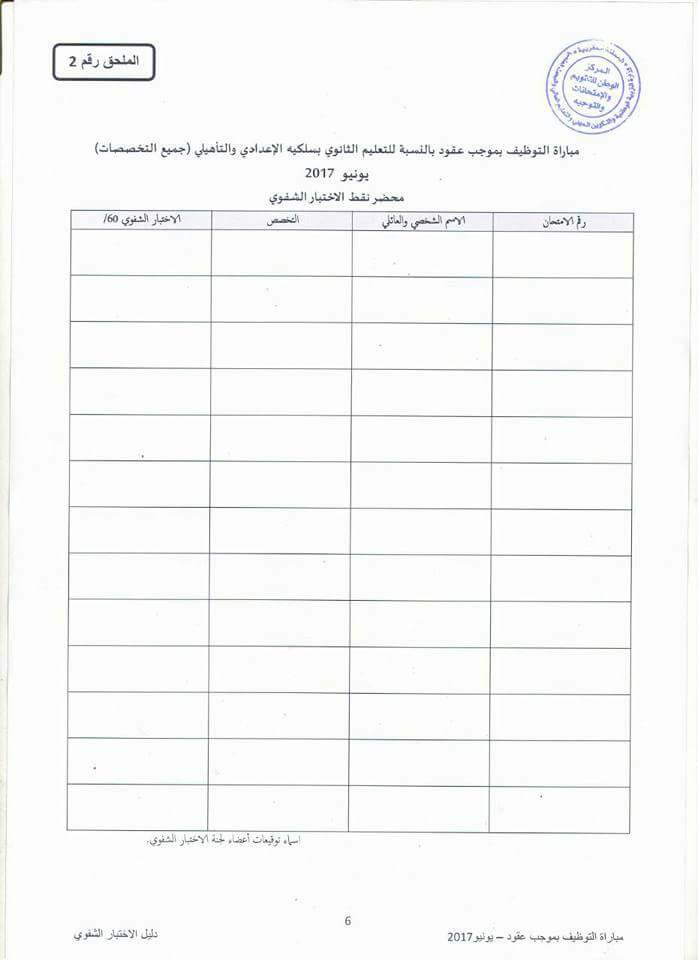 الملحق رقم 2
المركز
الوطني للتقويم
والامتحانات
والتوجيه
مباراة التوظيف بموجب عقود بالنسبة للتعليم الثانوي بسلكيه الإعدادي والتأهيلي (جميع التخصصات)
يونيو 2017
محضر نقط الاختبار الشفوي
رقم الامتحان الاسم الشخصي والعائلي التخصص الاختبار الشفوي 60/
اسماء توقيعات أعضاء لجنة الاختبار الشفوي.
6
مباراة التوظيف بموجب عقود – يونيو2017 دليل الاختبار الشفوي